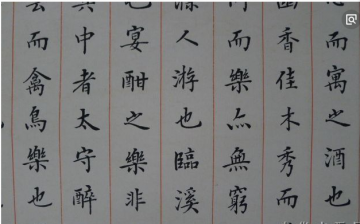 心而寓之酒也
幽香佳木秀而
而樂亦無窮
滁人游也臨溪
也宴酣之樂非
其中者太守醉
去而禽鳥樂也